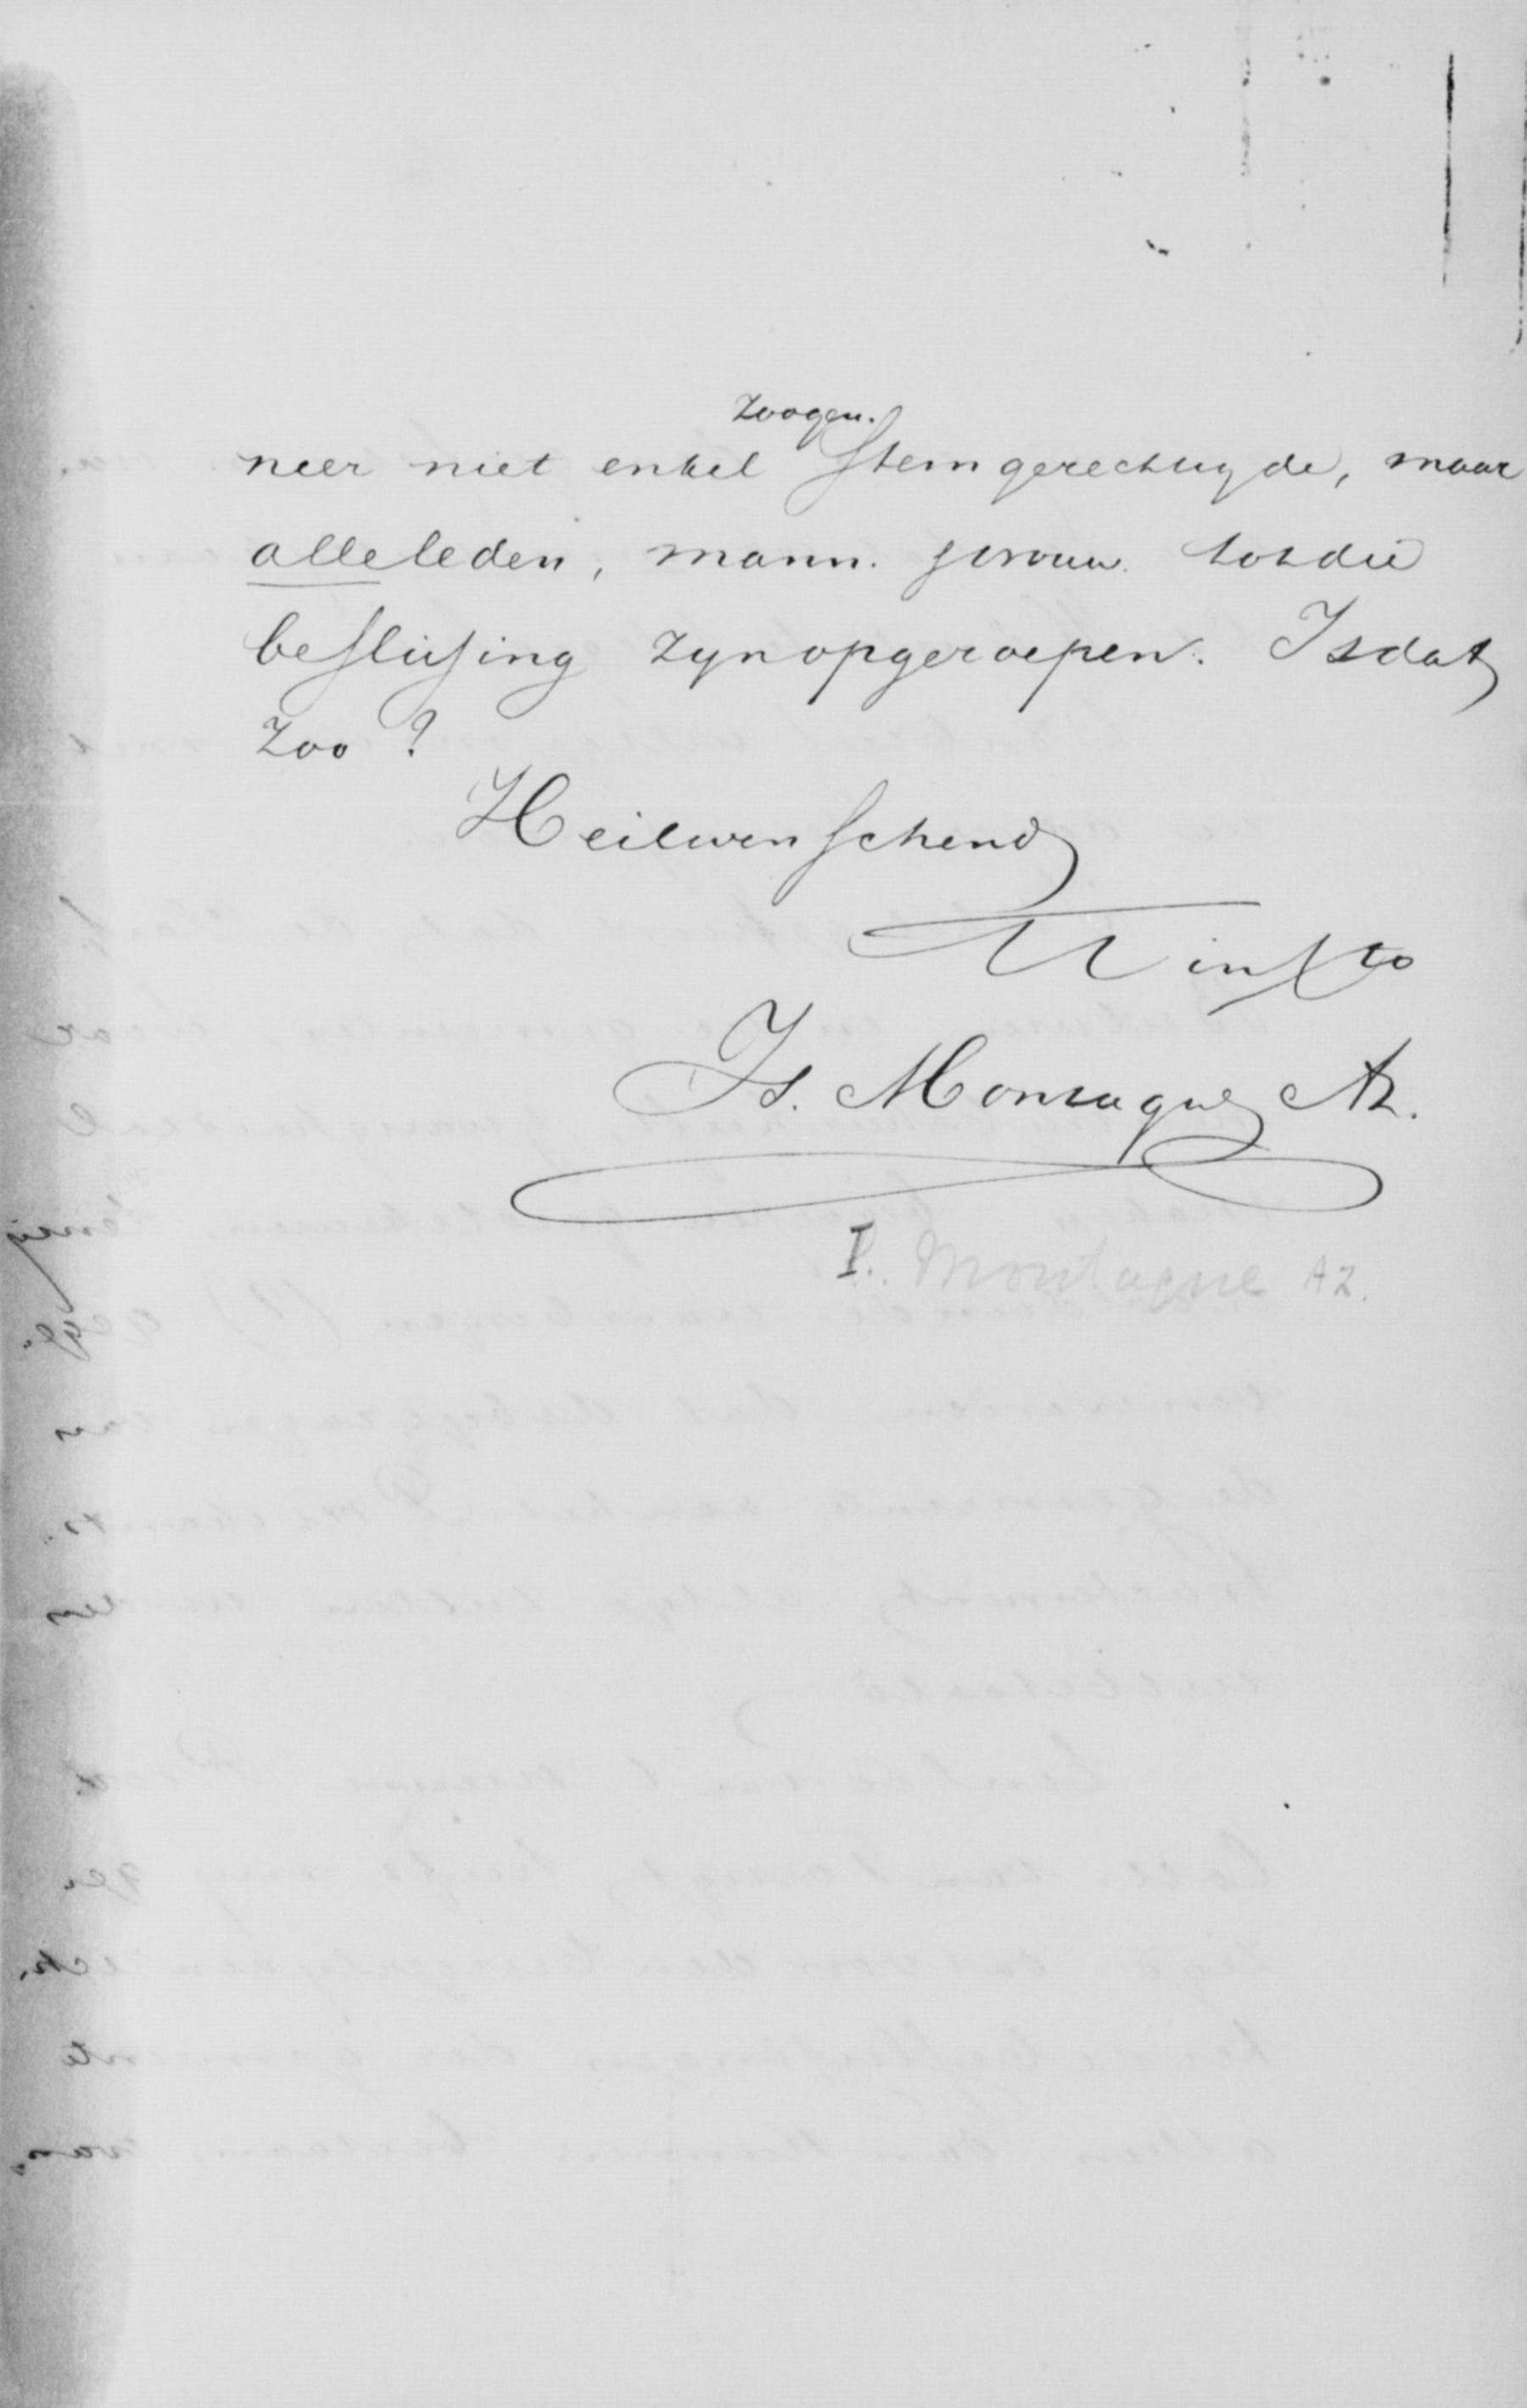 neer niet enkel zoogen. Stemgerechtigde, maar
alle leden, mann. & vrouw. tot die
beslissing zyn opgeroepen. Is dat
zoo?
Heilwenschend
Is. Montagne Az.
I. Montagne AZ.